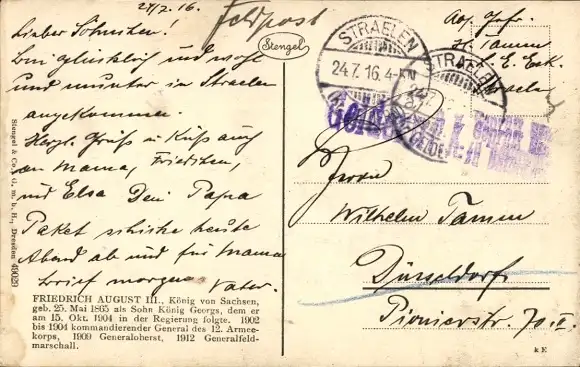 24/7.16.
Feldpost
Lieber Söhnchen!
Bin glücklich und wohl
und munter in Straelen
angekommen.
Herzl. Gruß u Kuß auch
an Mama, Friedchen,
und Elsa Dein Papa
Paket schicke heute
Abend ab und für Mama
brief morgen Vater.
Stengel & Co., G. m. b. H., Dresden 49029
FRIEDRICH AUGUST III., König von Sachsen,
geb. 25. Mai 1865 als Sohn König Georgs, dem er
am 15. Okt. 1904 in der Regierung folgte. 1902
bis 1904 kommandierender General des 12. Armee-
korps, 1909 Generaloberst, 1912 Generalfeld-
marschall.
Stengel
STRAELEN
24.7.16.4-5N
STRAELEN
Tamm
Straelen
Herrn
Wilhelm Tamm
Düsseldorf
Pionierstr. 70. II.
k E